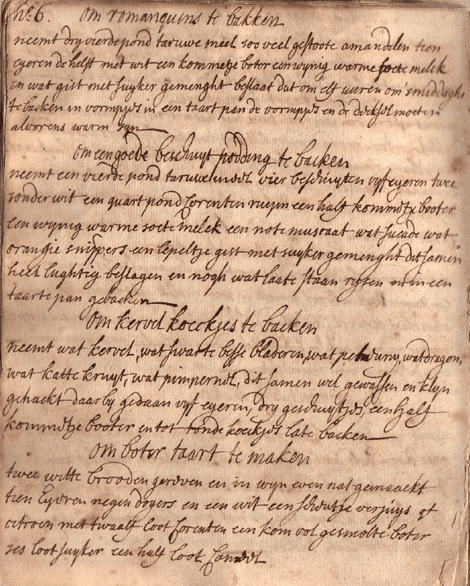 No 6. om romanquins te backen
neemt dry vierdepond taruwe meel soo veel gestoote amandelen tien
eyeren de helft met wit een kommetje boter een wynig warme soete melek
en wat gist met suyker gemenght beslaat dat om elf uuren om smiddaghs
te backen in vormpjes in een taart pan de vormpjes en de decksel moeten
alvorens warm syn
om een goede beschuyt podding te backen
neemt een vierde pond taruwe meel vier beschuyten vyf eyeren twee
sonder wit een quart pond Corenten ruym een half kommetje booter
een wynig warme soete melek een note muscaat wat sucade wat
orangie snippers een lepeltje gist met suyker gemenght dit samen
heel lughtig beslagen en nogh wat laate staan rysen in een
taarte pan gebacken
om kervel koeckjes te backen
neemt wat kervel, wat swarte besse bladeren, wat wat dragon,
wat katte kruyt, wat pimpernel, dit samen wel gewassen en klyn
gehackt daar by gedaan vyf eyeren, dry beschuytjes, een half
kommetje booter en tot ronde koeckjes late backen
om boter taart te maken
twee witte brooden gereven en in wyn even nat gemaackt
tien Eyeren negen doyers en een wit een scheutje verjuys of
citroen met twaalf loot Corenten een kom vol gesmolte boter
ses loot suyker een half loot Caneel